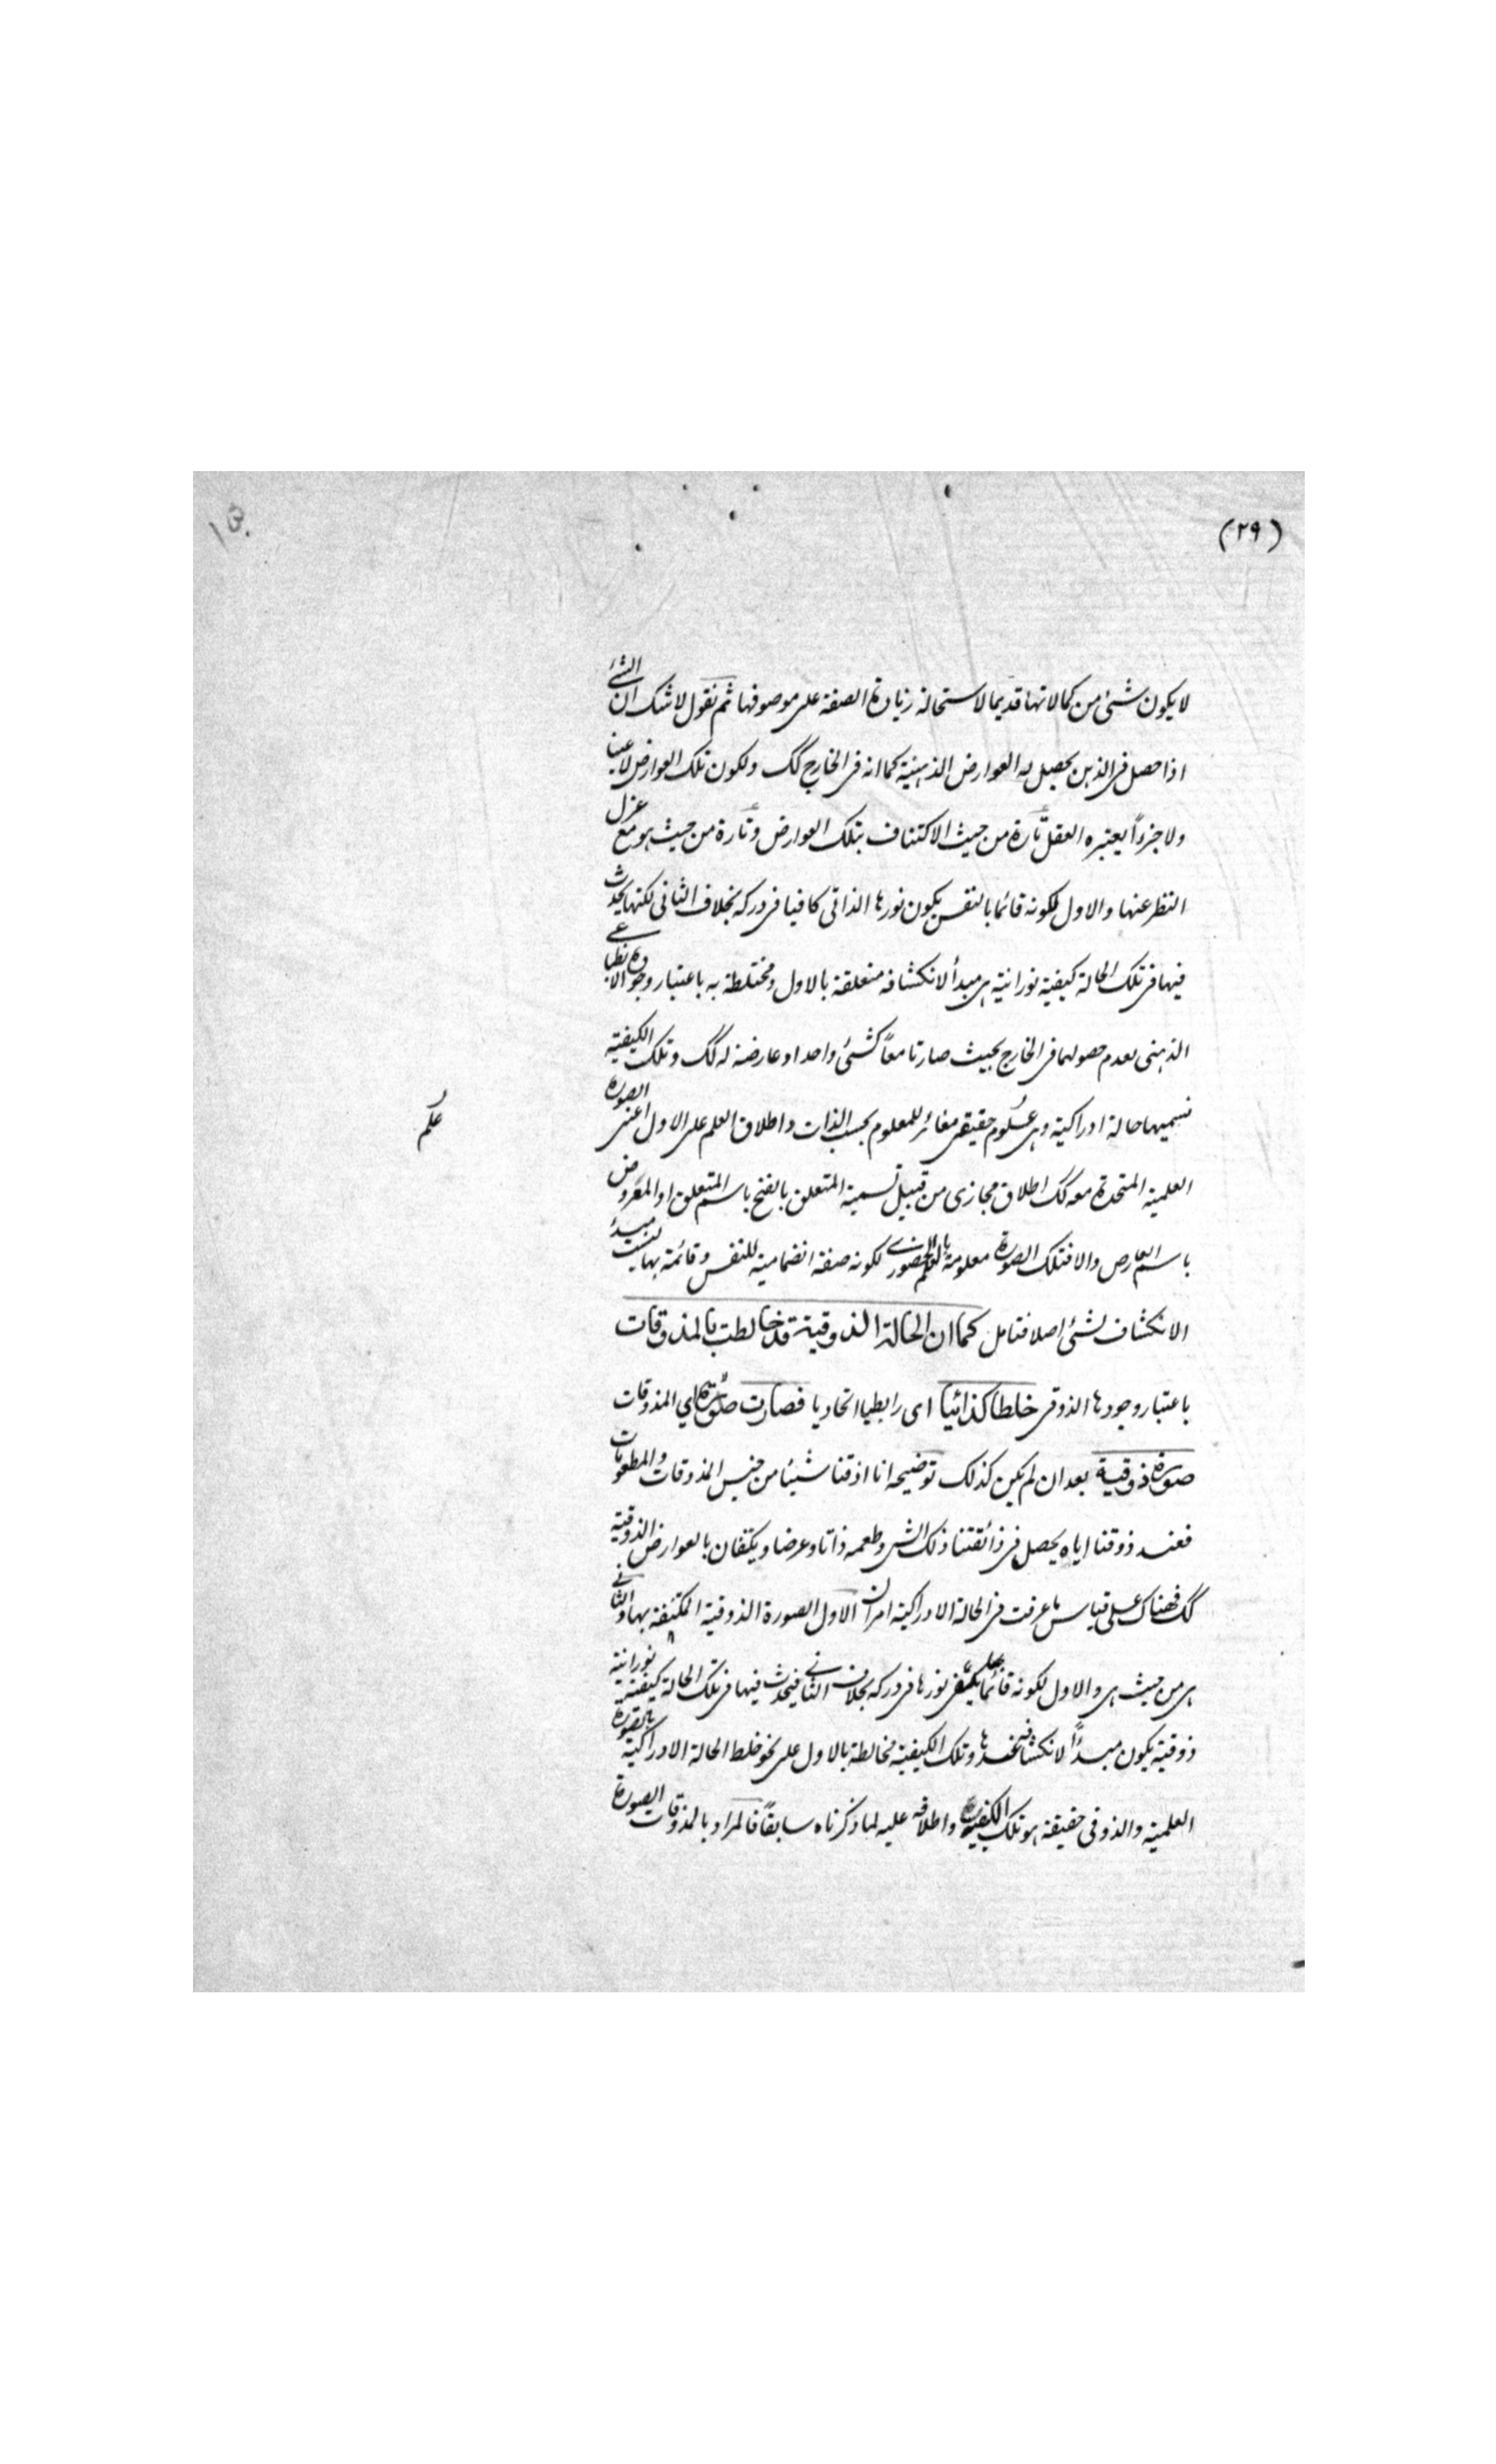 (٢٩)
لا يكون شئ من كمالاتها قديما لاستحالة زيادة الصفة على موصوفها ثم نقول لا شك ان الشئ
اذا حصل فى الذهن يحصل به العوارض الذهنية كما انه فى الخارج كك ولكون تلك العوارض لا عينا
ولا جزءاً يعتبره العقل تارة من حيث الاكتناف بتلك العوارض وتارة من حيث هو مع عزل
النظر عنها والاول لكونه قائما بالنفس يكون نورها الذاتى كافيا فى دركه بخلاف الثانى لكنها يحدث
فيها فى تلك الحالة كيفية نورانية هى مبدأ لانكشافه متعلقة بالاول ومختلطة به باعتبار وجوده الانطباعى
الذهنى لعدم حصولهما فى الخارج بحيث صارتا معاً كشئ واحد او عارضة له كك وتلك الكيفية
نسميها حالة ادراكية وهى علوم حقيقى مغائر للمعلوم بحسب الذات واطلاق العلم على الاول اعنى الصورة
علم
العلمية المتحدة معه كك اطلاق مجازى من قبيل تسمية المتعلق بالفتح باسم المتعلق او المعروض
باسم العارض والا فتلك الصورة معلومة بالعلم الحضورى لكونه صفة انضمامية للنفس وقائمة بها ليست مبدء
الانكشاف لشئ اصلا فتامل كما ان الحالة الذوقية قد خالطت بالمذوقات
باعتبار وجودها الذوقى خلطا كذائيا اى رابطيا اتحاديا فصارت صورة اي المذوقات
صورة ذوقية بعد ان لم يكن كذلك توضيحه انا اذقنا شيئا من جنس المذوقات والمطعومات
فعند ذوقنا اياه يحصل فى ذائقتنا ذلك الشى وطعمه ذاتا وعرضا ويكتفان بالعوارض الذوقية
كك فهناك على قياس ما عرفت فى الحالة الادراكية امران الاول الصورة الذوقية المكتنفة بها والثانى
هى من حيث هى والاول لكونه قائما يكفى نورها فى دركه بخلاف الثانى فيحدث فيها فى تلك الحالة كيفية نورانية
ذوقية يكون مبدأً لانكشافه عندها وتلك الكيفية مخالطة بالاول على نحو خلط الحالة الادراكية بالصورة
العلمية والذوقى حقيقة هو تلك الكيفية واطلاقه عليه لما ذكرناه سابقاً فالمراد بالمذوقات الصورة